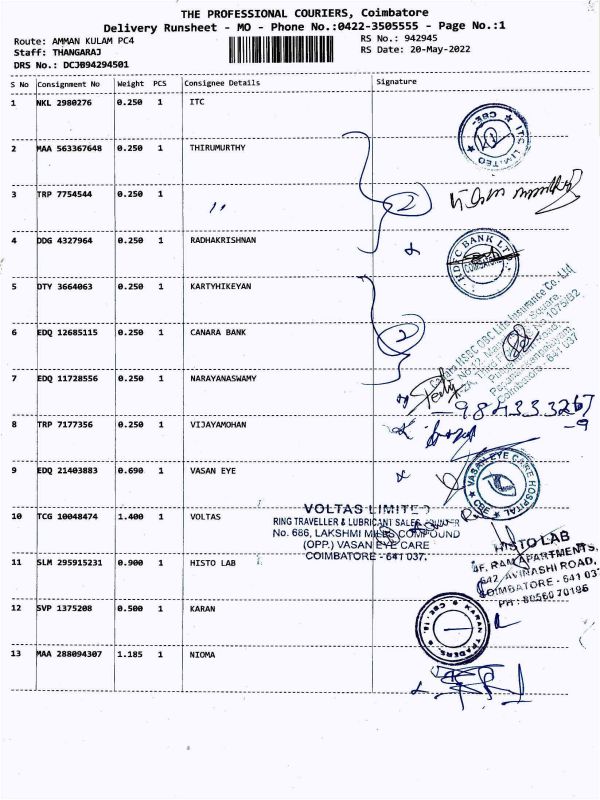 THE PROFESSIONAL COURIERS, Coimbatore
Delivery Runsheet - MO - Phone No.:0422-3505555 - Page No.:1
Route: AMMAN KULAM PC4 RS No.: 942945
Staff: THANGARAJ RS Date: 20-May-2022
DRS No.: DCJB94294501
S No Consignment No Weight PCS Consignee Details Signature
1 NKL 2980276 0.250 1 ITC
ITC LIMITED CBE-
2 MAA 563367648 0.250 1 THIRUMURTHY
3 TRP 7754544 0.250 1 ,, 2
4 DDG 4327964 0.250 1 RADHAKRISHNAN
HDFC BANK LTD COIMBATORE
5 DTY 3664063 0.250 1 KARTYHIKEYAN
6 EDQ 12685115 0.250 1 CANARA BANK 2
Canara HSBC OBC Life Insurance Co. Ltd
Coimbatore - 641 037
7 EDQ 11728556 0.250 1 NARAYANASWAMY
8 TRP 7177356 0.250 1 VIJAYAMOHAN
9 EDQ 21403883 0.690 1 VASAN EYE
VASAN EYE CARE HOSPITAL CBE
10 TCG 10048474 1.400 1 VOLTAS
VOLTAS LIMITED
RING TRAVELLER & LUBRICANT SALES COUNTER
No. 686, LAKSHMI MILLS COMPOUND
(OPP.) VASAN EYE CARE
COIMBATORE - 641 037.
11 SLM 295915231 0.900 1 HISTO LAB
HISTO LAB
RAM APARTMENTS,
642, AVINASHI ROAD,
COIMBATORE - 641 037
PH : 8056070196
12 SVP 1375208 0.500 1 KARAN
KARAN TRADERS
13 MAA 288094307 1.185 1 NIOMA